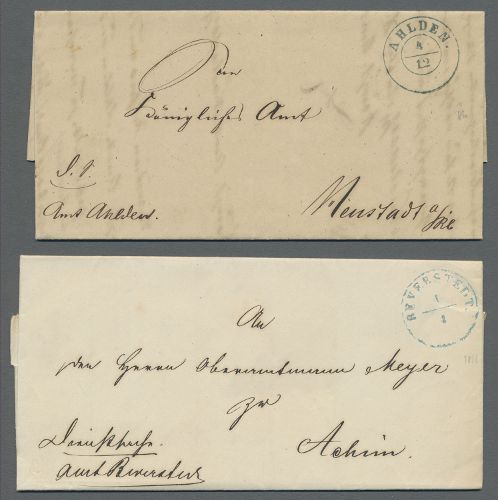 AHLDEN.
4
12
An
Königliches Amt
D. S.
Amt Ahlden.
Neustadt a/Rbg
BEVERSTEDT.
1
1
An
den Herrn Oberamtmann Meyer
zu
Achim.
Dienstsache.
Amt Beverstedt